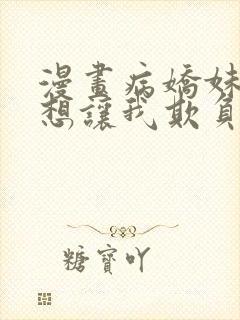 漫畫病嬌妹
想讓我欺負
糖寶吖